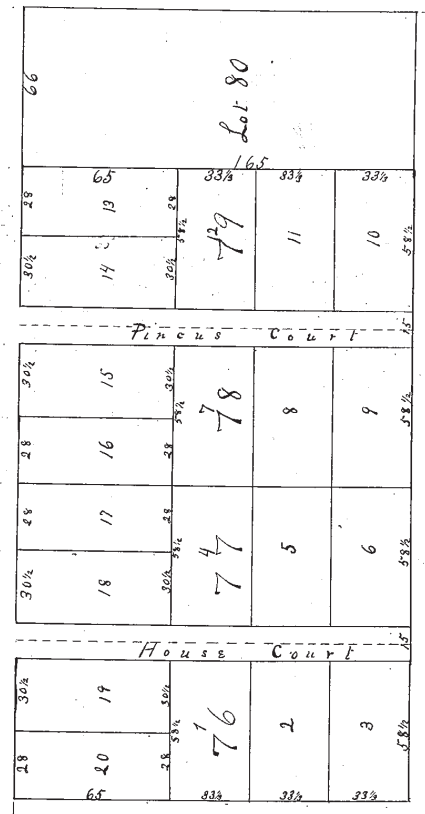 66
Lot 80
165
65 33⅓ 33⅓ 33⅓
28 13 28
58½ 12 79 11 10 58½
30½ 14 30½
Pincus Court 15
30½ 15 30½
58½ 7 78 8 9 58½
28 16 28
28 17 28
58½ 4 77 5 6 58½
30½ 18 30½
House Court 15
30½ 19 30½
58½ 1 76 2 3 58½
28 20 28
65 33⅓ 33⅓ 33⅓